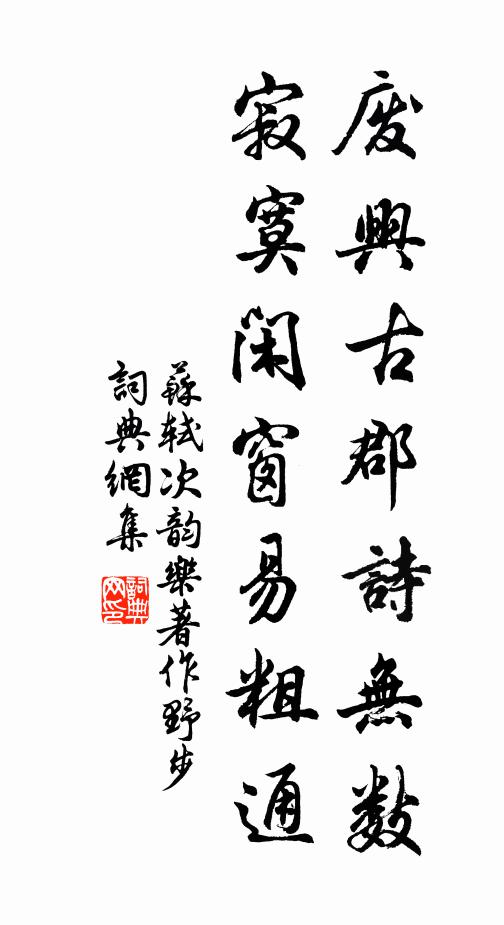 廢興古郡詩無數
寂寞閑窗易粗通
蘇軾次韵樂著作野步
詞典網集
詞典
网印